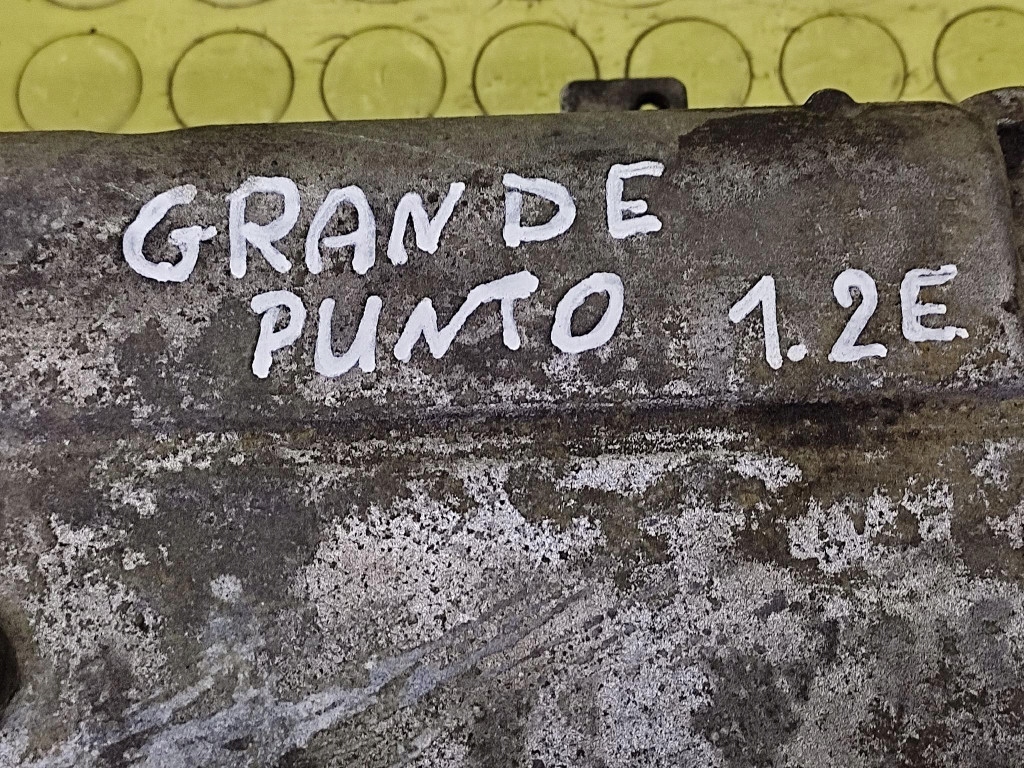 GRANDE
PUNTO 1.2E.